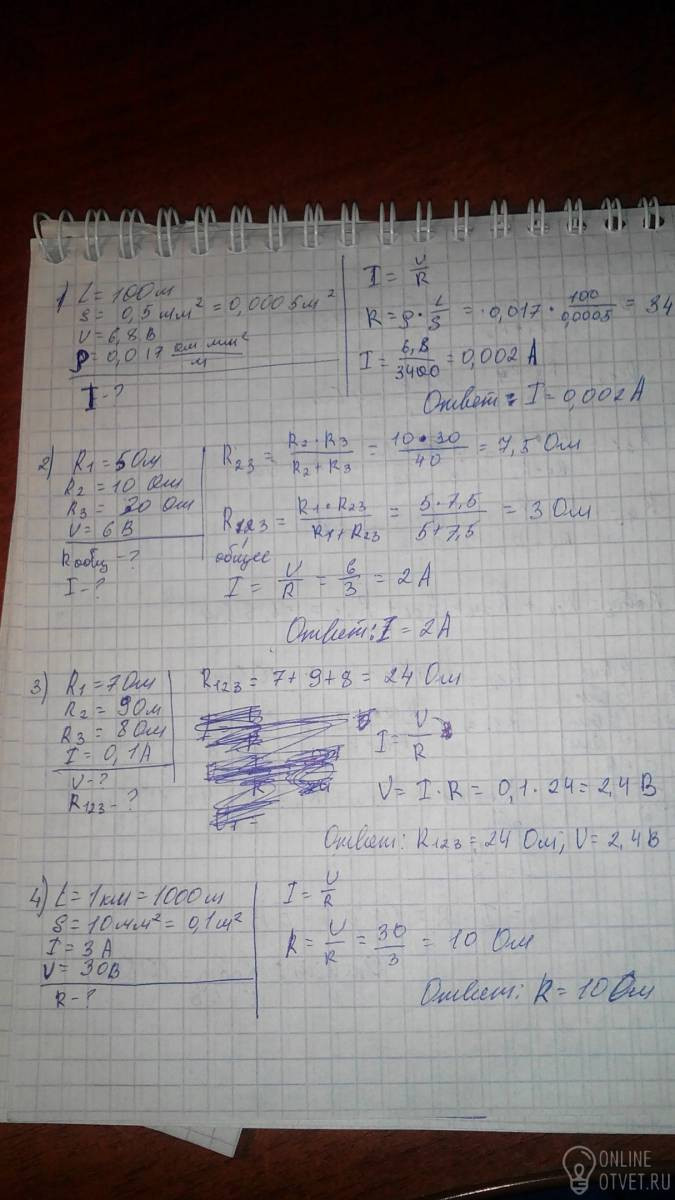 1) L = 100м
S = 0,5 мм² = 0,0005м²
U = 6,8 В
ρ = 0,017 ом мм²/м
I - ?
I = U/R
R = ρ · L/S = · 0,017 · 100/0,0005 = 34
I = 6,8/3400 = 0,002 А
Ответ: I = 0,002 А
2) R1 = 5 Ом
R2 = 10 Ом
R3 = 30 Ом
U = 6 В
Rобщ - ?
I - ?
R23 = R2 · R3/R2 + R3 = 10 · 30/40 = 7,5 Ом
R123 = R1 · R23/R1 + R23 = 5 · 7,5/5 + 7,5 = 3 Ом
общее
I = U/R = 6/3 = 2 А
Ответ: I = 2А
3) R1 = 7 Ом
R2 = 9 Ом
R3 = 8 Ом
I = 0,1 А
U - ?
R123 - ?
R123 = 7 + 9 + 8 = 24 Ом
I = U/R
U = I · R = 0,1 · 24 = 2,4 В
Ответ: R123 = 24 Ом, U = 2,4 В
4) L = 1 км = 1000 м
S = 10 мм² = 0,1 м²
I = 3 А
U = 30В
R - ?
I = U/R
R = U/R = 30/3 = 10 Ом
Ответ: R = 10 Ом
ONLINE
OTVET.RU